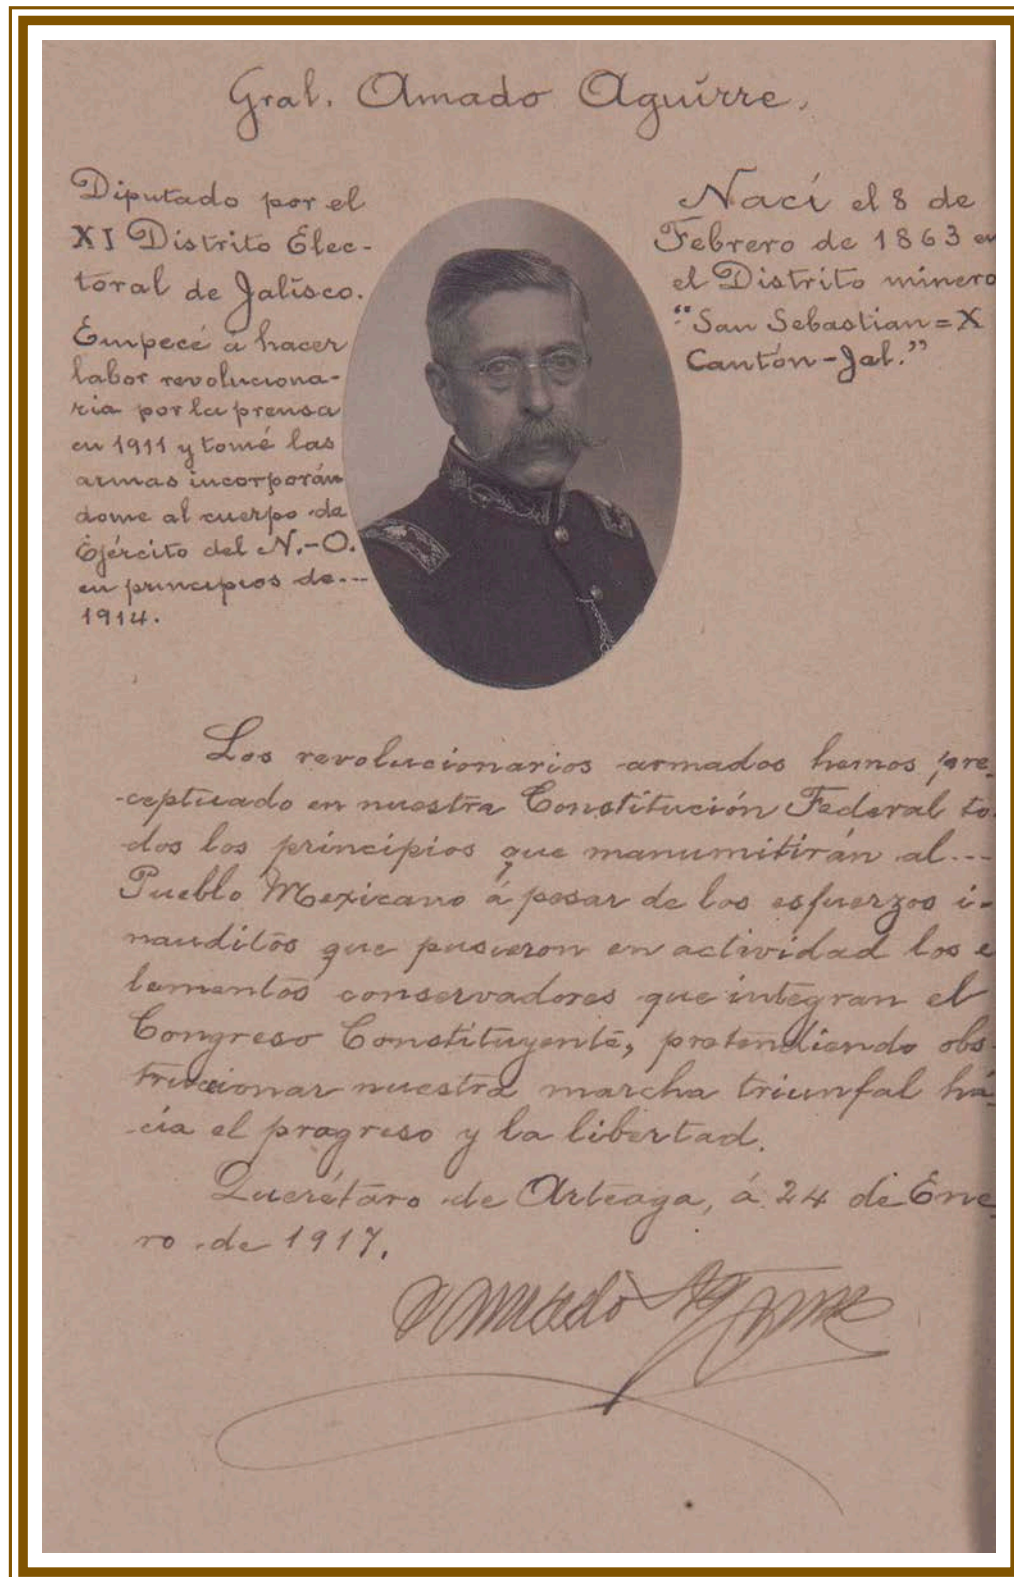 Gral. Amado Aguirre.
Diputado por el
XI Distrito Elec-
toral de Jalisco.
Empecé á hacer
labor revoluciona-
ria por la prensa
en 1911 y tomé las
armas incorporán
dome al cuerpo de
Ejército del N.-O.
en principios de---
1914.
Nací el 8 de
Febrero de 1863 en
el Distrito minero
"San Sebastian=X
Cantón-Jal."
Los revolucionarios armados hemos pre-
ceptuado en nuestra Constitución Federal to-
dos los principios que manumitirán al---
Pueblo Mexicano á pesar de los esfuerzos i-
nauditos que pusieron en actividad los e
lementos conservadores que integran el
Congreso Constituyente, pretendiendo obs-
truccionar nuestra marcha triunfal há-
cia el progreso y la libertad.
Querétaro de Arteaga, á 24 de Ene-
ro de 1917.
Amado Aguirre